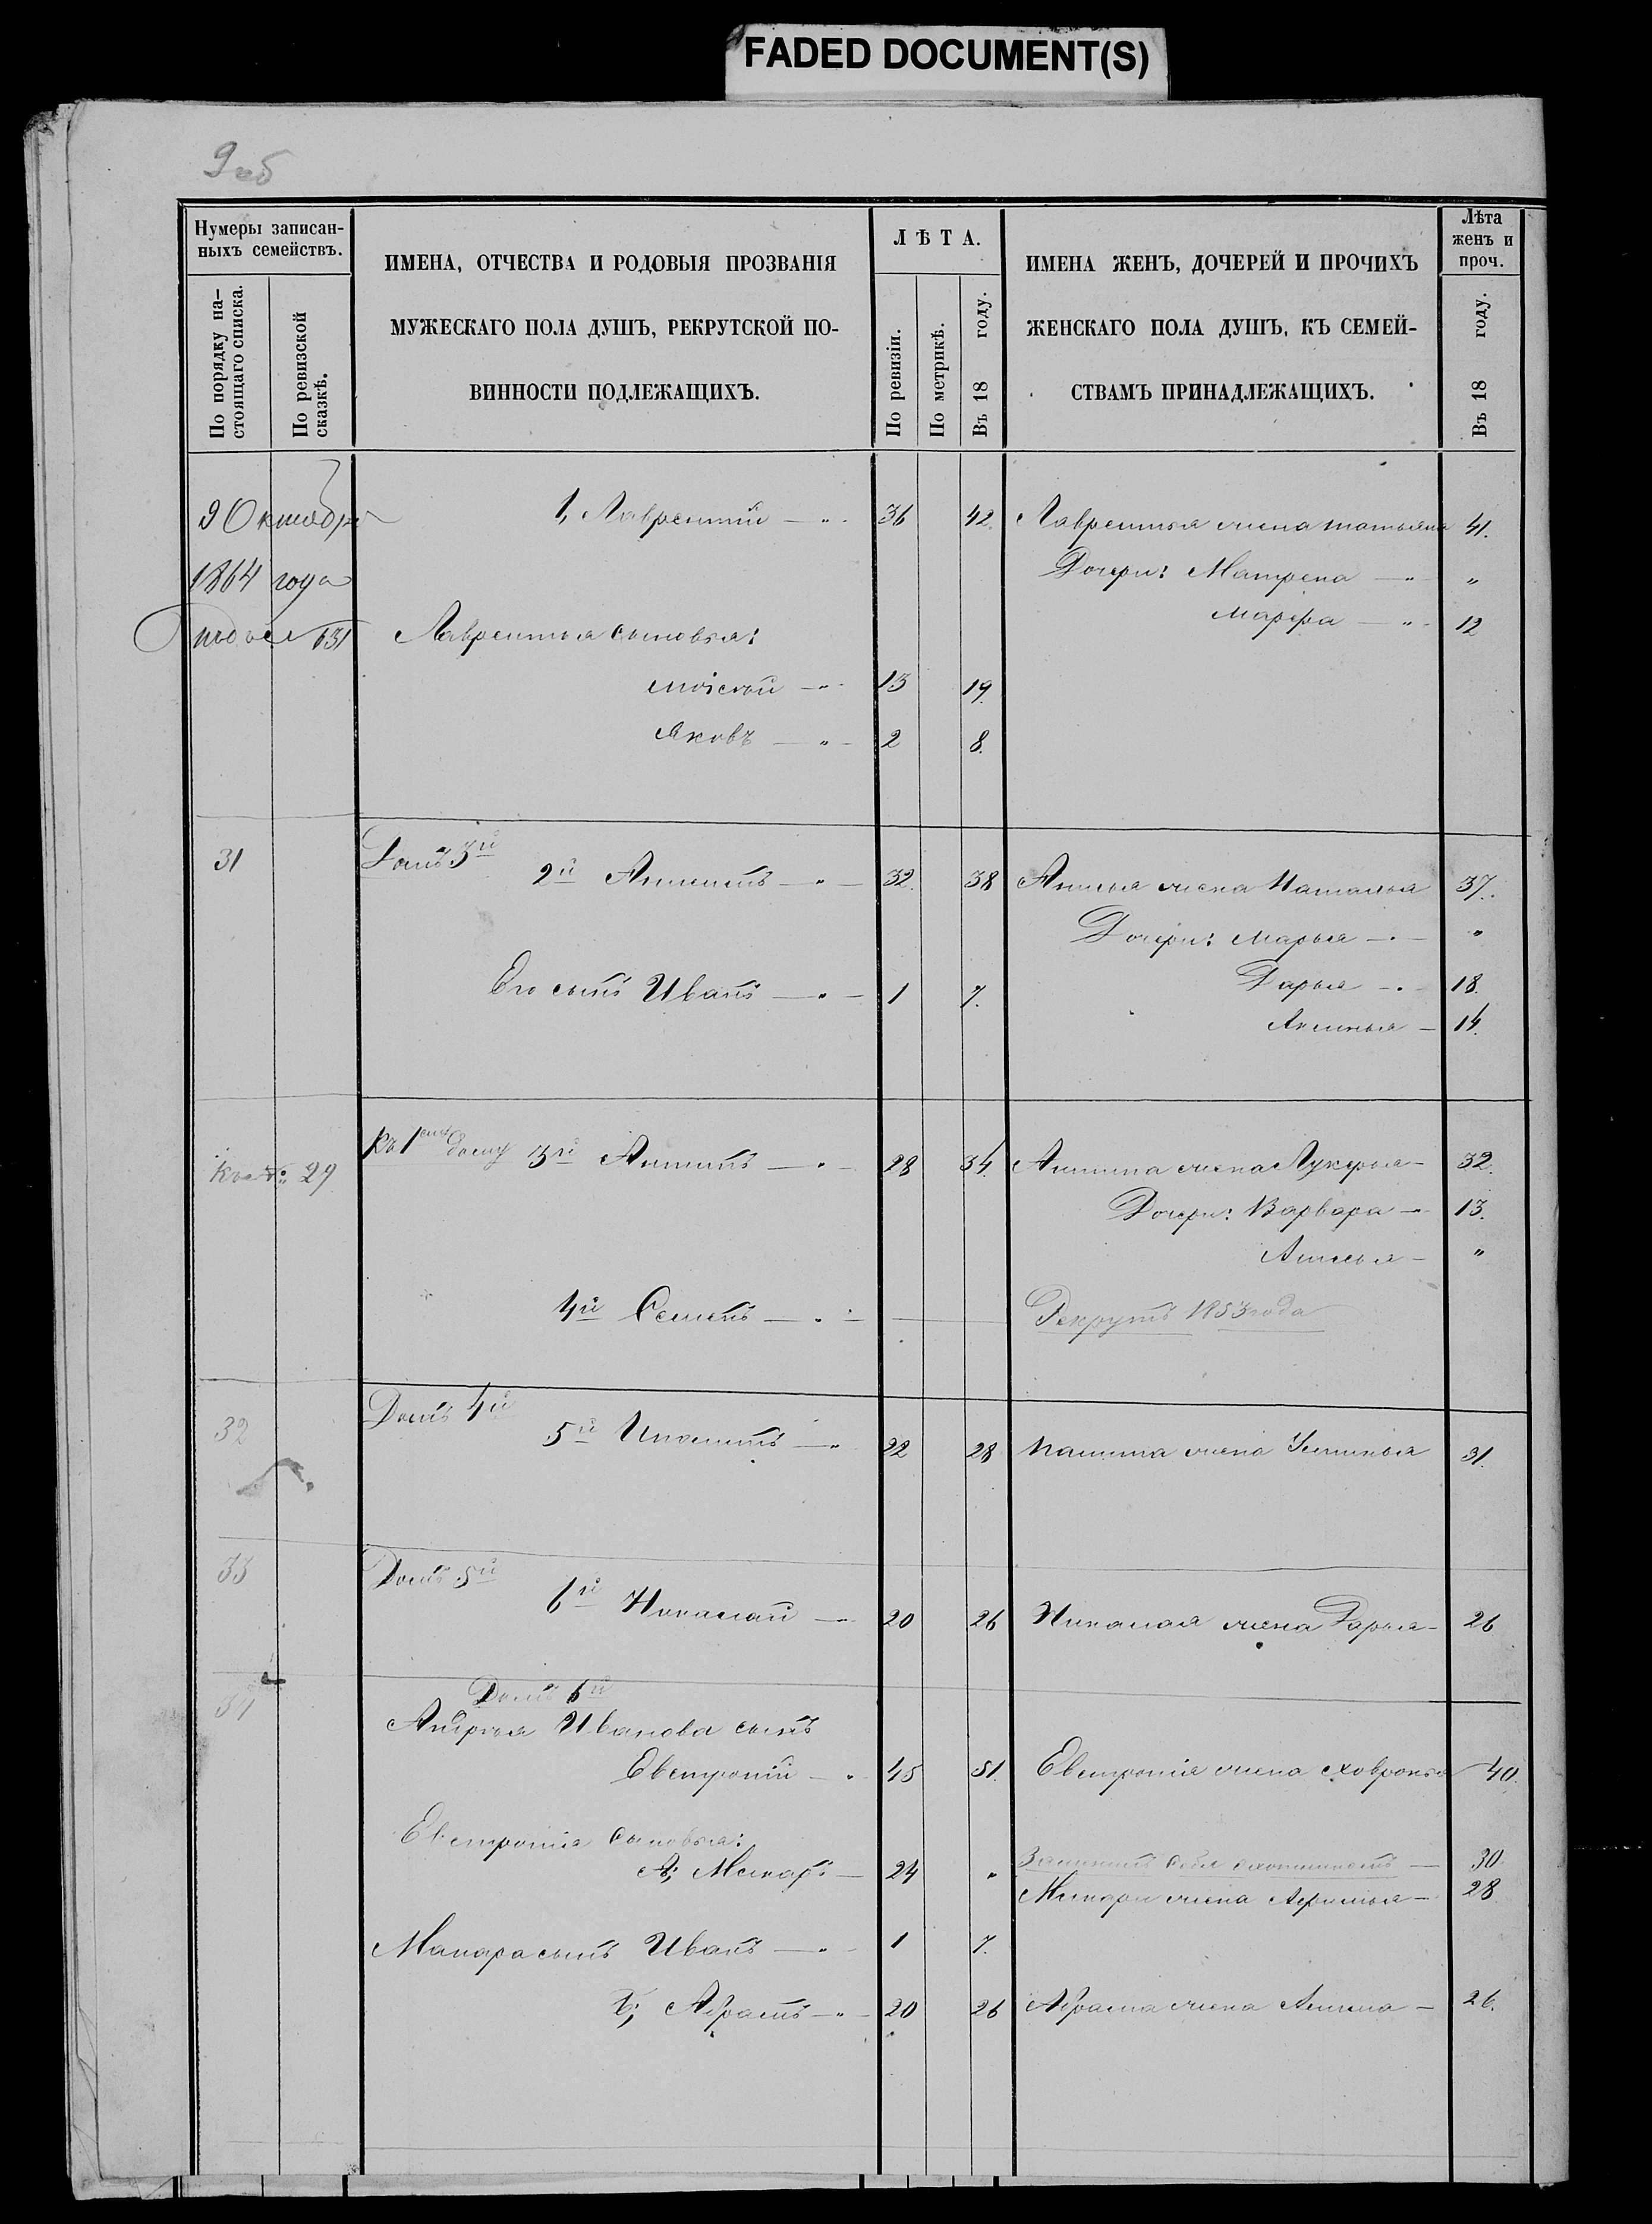 FADED DOCUMENT(S)
9 об
Нумеры записан-
ныхъ семействъ.
По порядку на-
стоящаго списка.
По ревизской
сказкѣ.
ИМЕНА, ОТЧЕСТВА И РОДОВЫЯ ПРОЗВАНІЯ
МУЖЕСКАГО ПОЛА ДУШЪ, РЕКРУТСКОЙ ПО-
ВИННОСТИ ПОДЛЕЖАЩИХЪ.
ЛѢТА.
По ревизіи.
По метрикѣ.
Въ 18 году.
ИМЕНА ЖЕНЪ, ДОЧЕРЕЙ И ПРОЧИХЪ
ЖЕНСКАГО ПОЛА ДУШЪ, КЪ СЕМЕЙ-
СТВАМЪ ПРИНАДЛЕЖАЩИХЪ.
Лѣта
женъ и
проч.
Въ 18 году.
9 Октября 1, Лаврентий — " 36 42. Лаврентья жена татьяна 41.
1864 года Дочери: Матрена — " "
Марфа — " 12
631 Лаврентья сыновья:
моісей — " 13 19.
Яковъ — " 2 8.
31 Домъ 3й
2й — " — 32. 38 жена Наталья 37.
Дочери: Марья — " — "
Его сынъ Иванъ — " — 1 7. Дарья — " 18.
Аксинья — 14.
Къ № 29 Къ 1ому дому 3й Антипъ — " — 28 34. Антипа жена Лукерья — 32.
Дочери: Варвара — 13.
"
4й Семенъ — " — Рекрутъ 1853 года
32 Домъ 4й
5й — " 22 28 жена Устинья 31.
33 Домъ 5й
6й Николай — 20 26 Николая жена Дарья — 26
34 Домъ 6й
Андрея Иванова сынъ
Евстропій — " 45 51. Евстропія жена Ховронья 40.
Евстропія сыновья:
А, Макаръ — 24 " 30.
Макара жена Афимья — 28
Макара сынъ Иванъ — " — 1 7.
Б, Абрамъ — " — 20 26 Абрама жена — 26.